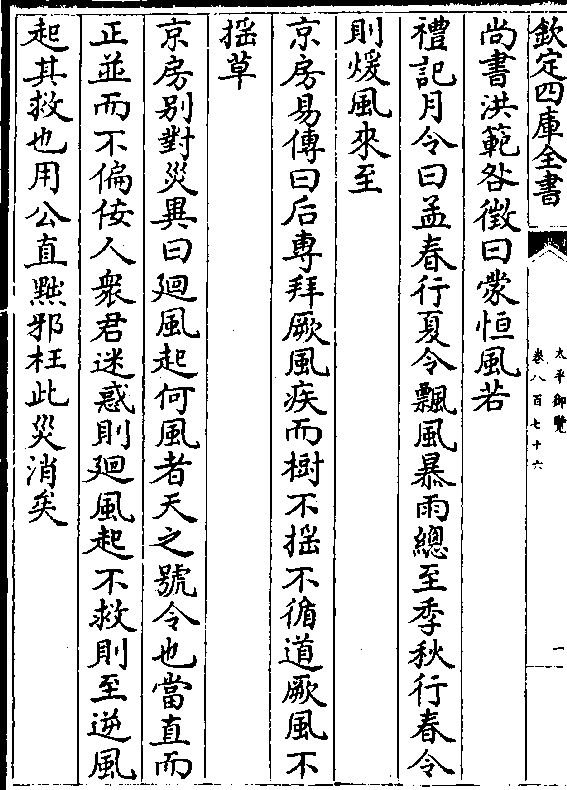 欽定四庫全書
太平御覽
卷八百七十六
一
尚書洪範咎徵曰蒙恒風若
禮記月令曰孟春行夏令飄風暴雨總至季秋行春令
則煖風來至
京房易傳曰后専拜厥風疾而樹不揺不循道厥風不
揺草
京房别對災異曰廻風起何風者天之號令也當直而
正並而不偏佞人衆君迷惑則廻風起不救則至逆風
起其救也用公直㸃邪枉此災消矣